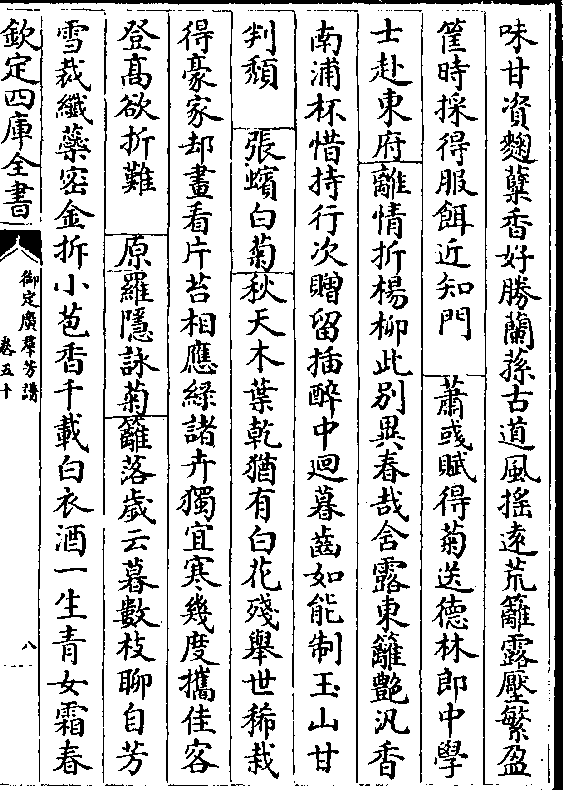 味甘資麴糵香好勝蘭蓀古道風搖逺荒籬露壓繁盈
筐時採得服餌近知門　蕭彧賦得菊送德林郎中學
士赴東府離情折楊柳此别異春哉含露東籬艶汎香
南浦杯惜持行次贈留插醉中迴暮齒如能制玉山甘
判頽　張蠙白菊秋天木葉乾猶有白花殘舉世稀栽
得豪家却畫看片苔相應緑諸卉獨宜寒幾度攜佳客
登髙欲折難　原羅隱詠菊籬落歲云暮數枝聊自芳
雪裁纖蘂宻金拆小苞香千載白衣酒一生青女霜春
欽定四庫全書
御定廣羣芳譜
卷五十
八